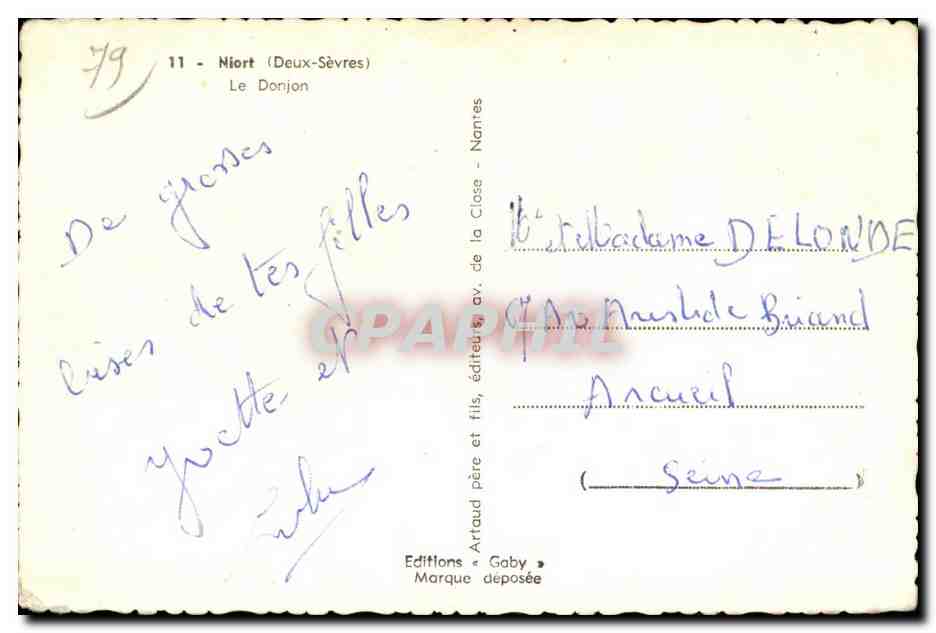 79
11 - Niort (Deux-Sèvres)
Le Donjon
De grosses
bises de tes filles
Yvette et
Artaud père et fils, éditeurs, av. de la Close - Nantes
Mr et Madame DELONDE
Av Aristide Briand
Arcueil
(Seine)
Editions « Gaby »
Marque déposée
CPAPHIL